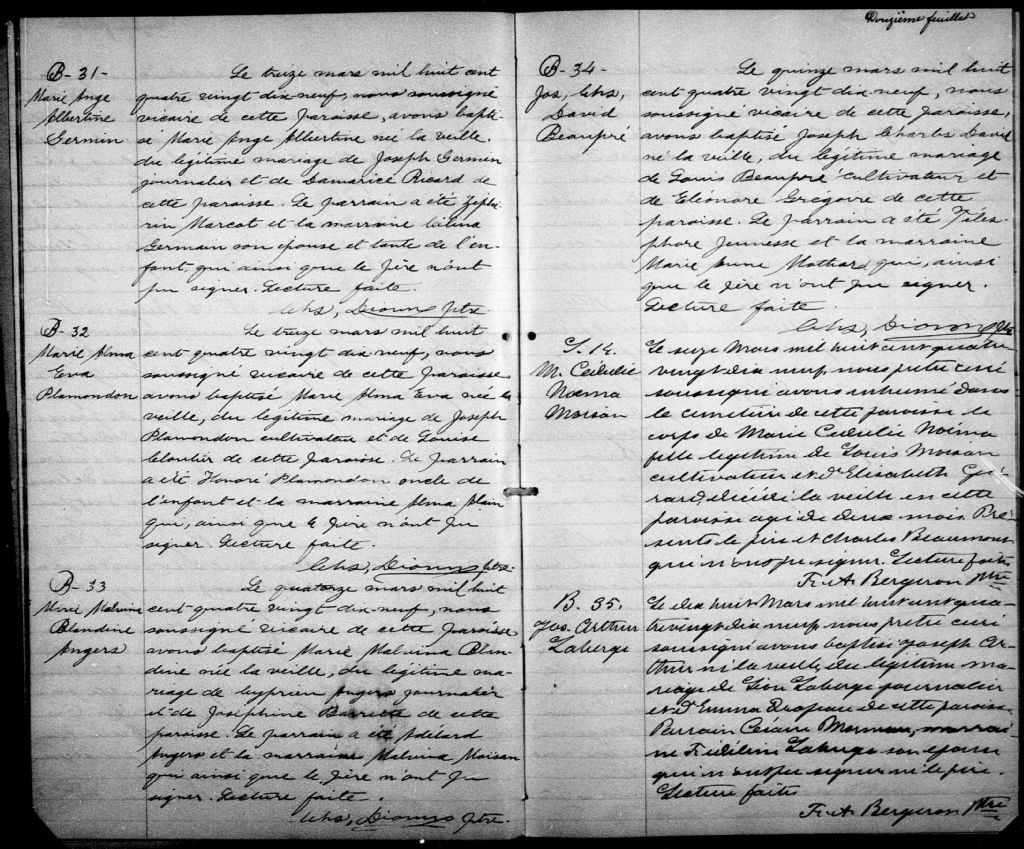 Douzième feuillet
B-31-
Marie Ange
Albertine
Germin
Le treize mars mil huit cent
quatre vingt dix neuf, nous soussigné
vicaire de cette paroisse, avons bapti-
sé Marie Ange Albertine né la veille,
du légitime mariage de Joseph Germin
journalier et de Damarice Ricard de
cette paroisse. Le parrain a été Zéphi-
rin Marcot et la marraine
Germain son épouse et tante de l'en-
fant, qui ainsi que le père n'ont
pu signer. Lecture faite.
Chs, Dionne ptre.
B-32
Marie Alma
Eva
Plamondon
Le treize mars mil huit
cent quatre vingt dix neuf, nous
soussigné vicaire de cette paroisse
avons baptisé Marie Alma Eva née la
veille, du légitime mariage de Joseph
Plamondon cultivateur et de Louise
Cloutier de cette paroisse. Le parrain
a été Honoré Plamondon oncle de
l'enfant et la marraine Alma Alain
qui, ainsi que le père n'ont pu
signer. Lecture faite.
Chs, Dionne ptre.
B-33
Marie Malvina
Blandine
Angers
Le quatorze mars mil huit
cent quatre vingt dix neuf, nous
soussigné vicaire de cette paroisse
avons baptisé Marie Malvina Blan-
dine née la veille, du légitime ma-
riage de Cyprien Angers journalier
et de Joséphine Barrette de cette
paroisse. Le parrain a été Adélard
Angers et la marraine Malvina Moisan
qui ainsi que le père n'ont pu
signer. Lecture faite.
Chs, Dionne ptre.
B-34-
Jos, Chs,
David
Beaupré
Le quinze mars mil huit
cent quatre vingt dix neuf, nous
soussigné vicaire de cette paroisse,
avons baptisé Joseph Charles David
né la veille, du légitime mariage
de Louis Beaupré cultivateur et
de Eléonore Grégoire de cette
paroisse. Le parrain a été Téles-
phore Jeunesse et la marraine
Marie Anne Mathard qui, ainsi
que le père n'ont pu signer.
Lecture faite
Chs, Dionne ptre
S. 14.
M. Cédulie
Noëma
Moisan
Le seize Mars mil huit cent quatre
vingt dix neuf, nous prêtre curé
soussigné avons inhumé dans
le cimetière de cette paroisse le
corps de Marie Cédulie Noëma
fille légitime de Louis Moisan
cultivateur et d'Elisabeth Gé-
rard, décédée la veille en cette
paroisse agée de deux mois. Pré-
sents le père et Charles Beaumont
qui n'ont pu signer. Lecture faite
F. A. Bergeron Ptre
B. 35.
Jos. Arthur
Laberge
Le dix huit Mars mil huit cent qua-
tre vingt dix neuf, nous prêtre curé
soussigné avons baptisé Joseph Ar-
thur né la veille du légitime ma-
riage de Léon Laberge journalier
et d'Emma de cette paroisse
Parrain Césaire marrai-
ne Laberge son épouse
qui n'ont pu signer ni le père.
Lecture faite
F. A. Bergeron Ptre